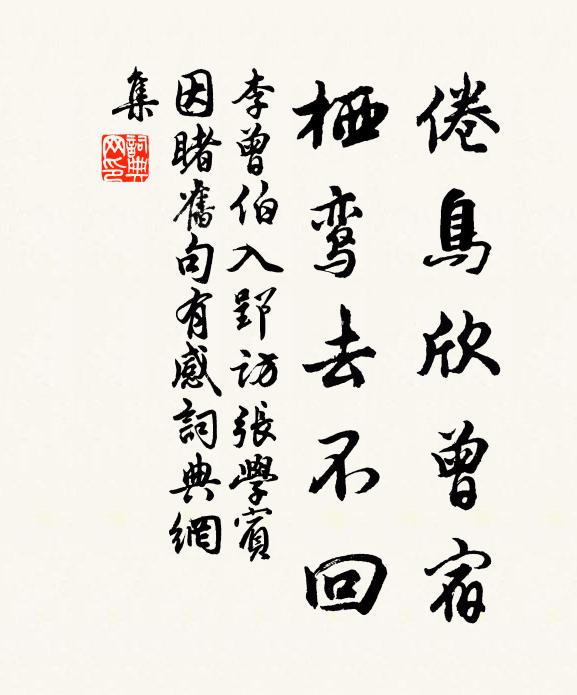 倦鳥欣曾宿
栖鸾去不回
李曾伯入郢访張學賓
因睹舊句有感詞典網
集
詞典
网印